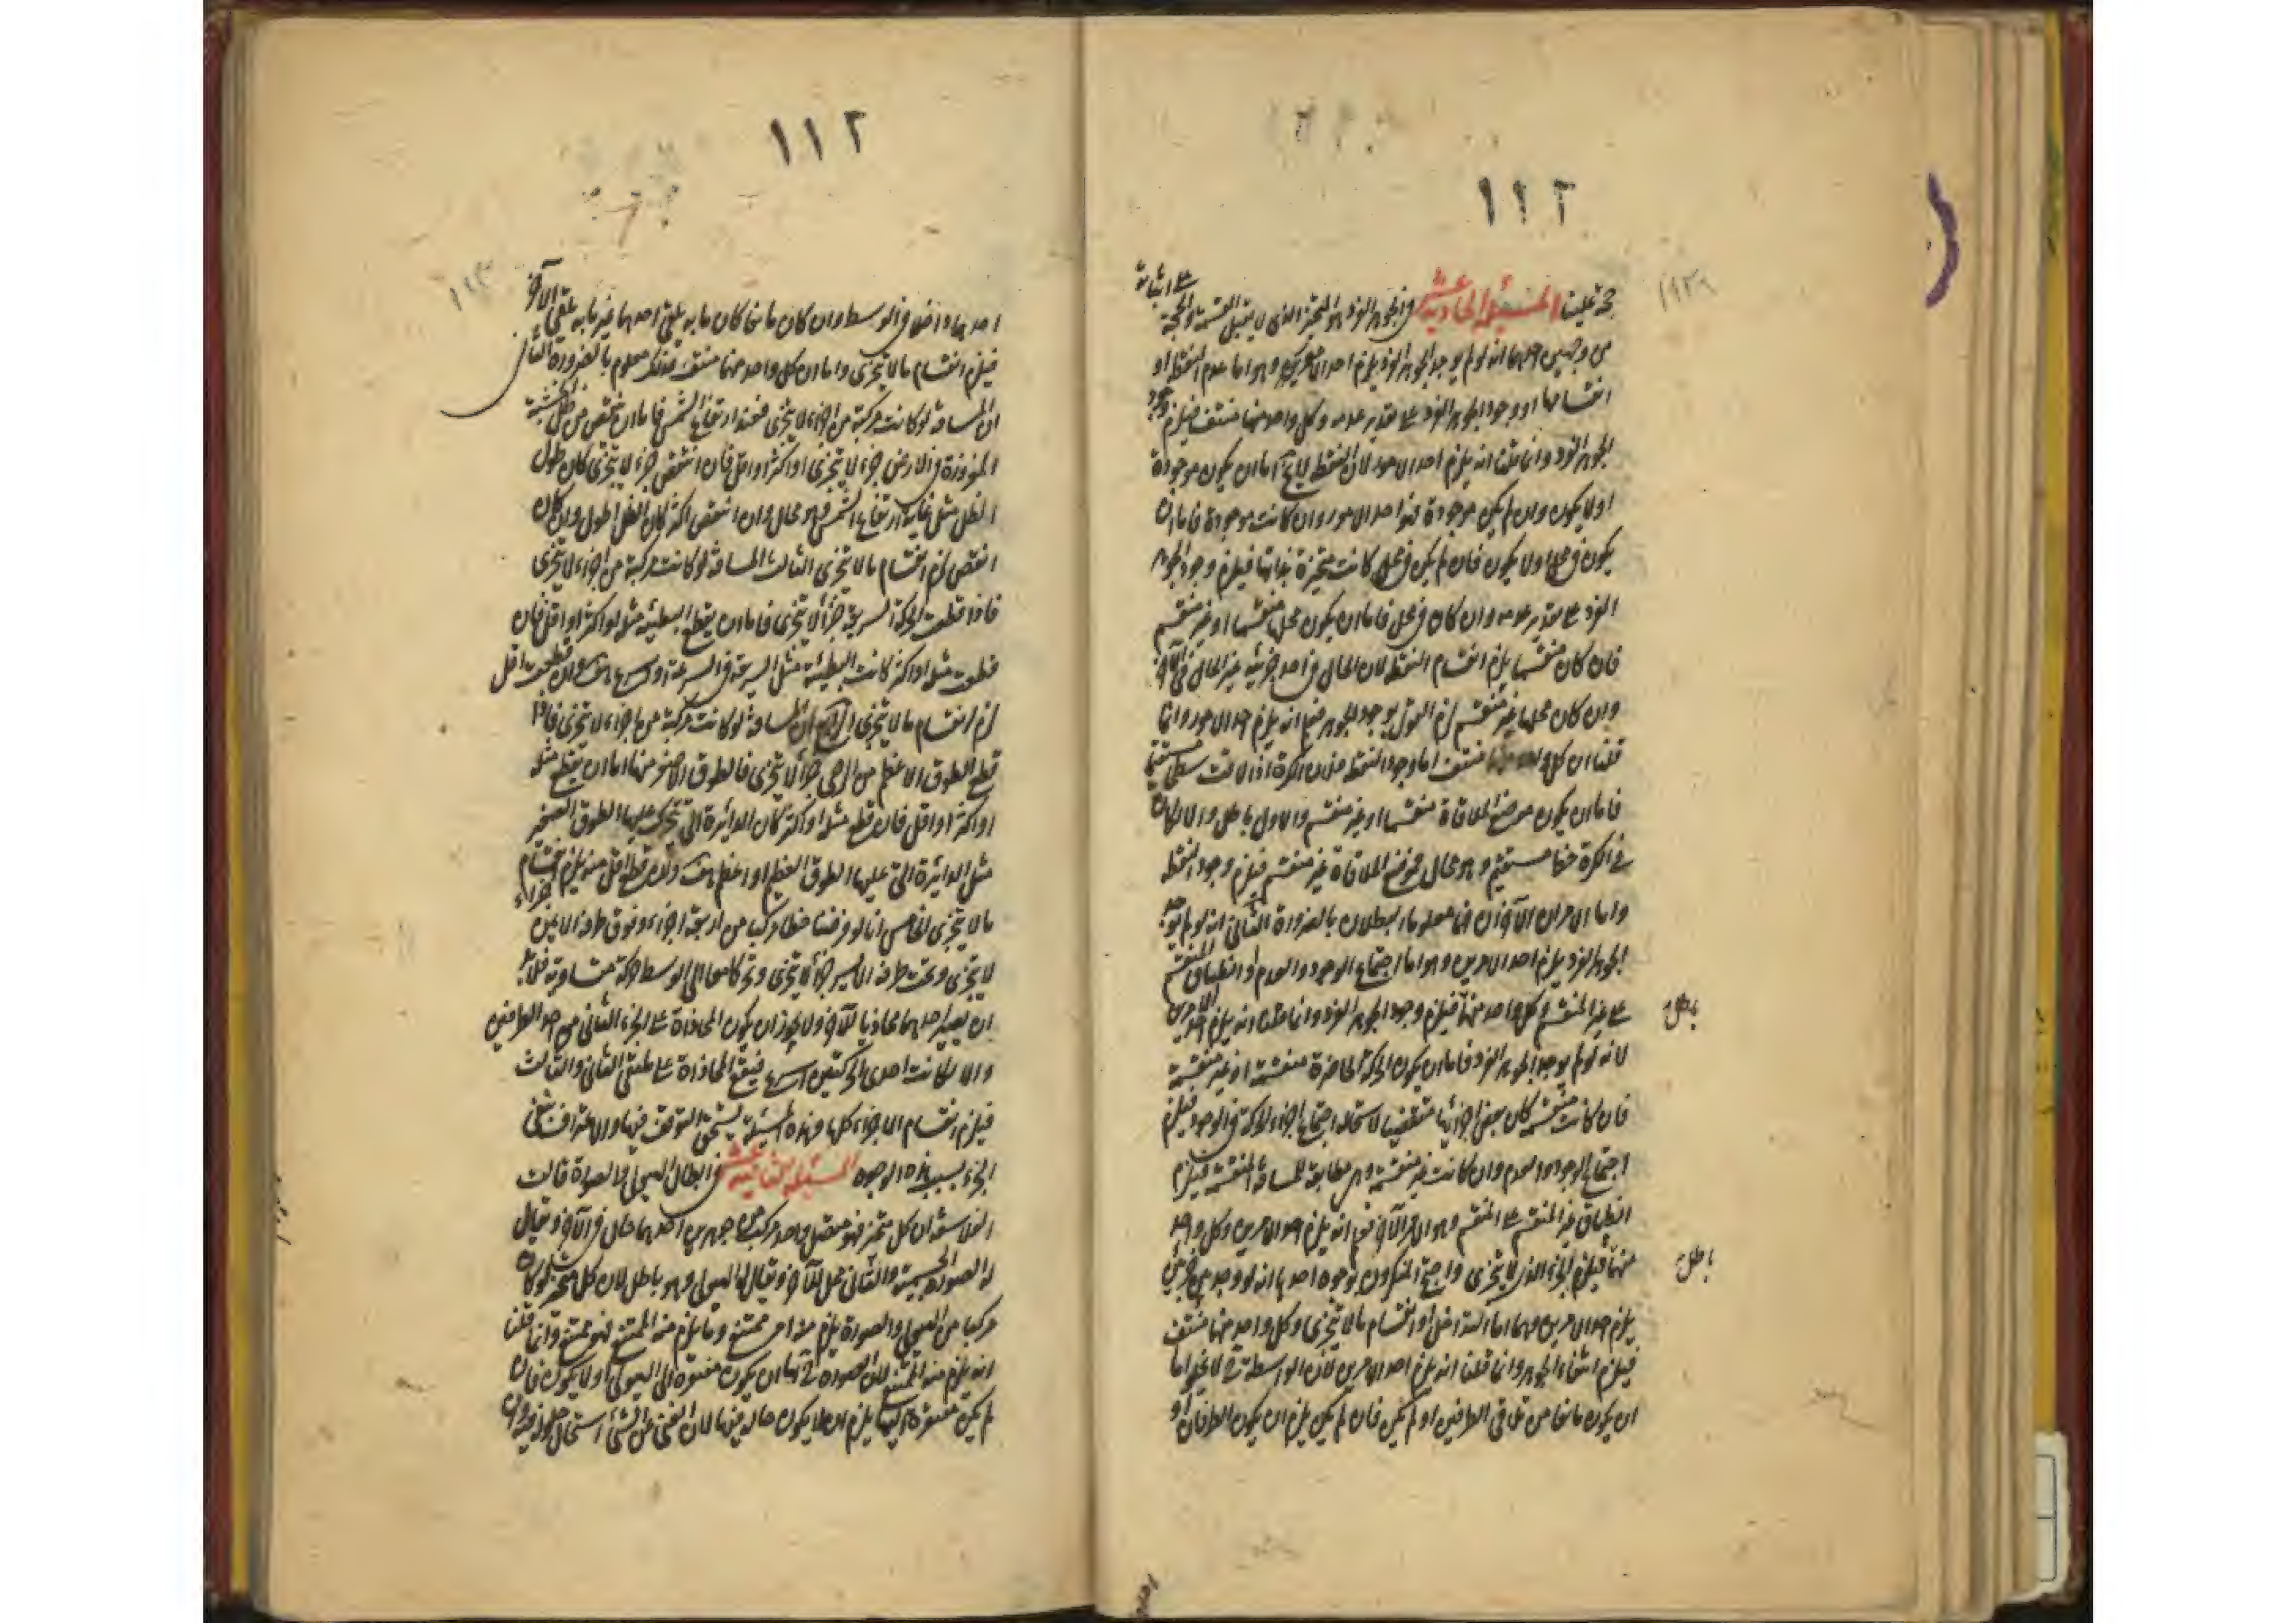 ١١٢
حجة علينا المسئلة الحادية عشر في الجوهر الفرد وهو المتحيز الذي لا يقبل القسمة والحجة على اثباته
من وجهين احدهما انه لو لم يوجد الجوهر الفرد يلزم احد الامور وهو اما عدم النقطة او
انقسامها او وجود الجوهر الفرد على تقدير عدمه وكل واحد منها منتف فيلزم وجود
الجوهر الفرد وانما قلنا انه يلزم احد الامور لان النقطة لا يخ اما ان يكون موجودة
او لا يكون وان لم يكن موجودة فهو احد الامور وان كانت موجودة فاما ان
يكون في محل او لا يكون فان لم يكن في محل كانت متحيزة بذاتها فيلزم وجود الجوهر
الفرد على تقدير عدمه وان كان في محل فاما ان يكون محلها منقسما او غير منقسم
فان كان منقسما يلزم انقسام النقطة لان الحال في احد جزئيه غير الحال في الآخر
وان كان محلها غير منقسم لزم القول بوجود الجوهر فثبت انه يلزم احد الامور وانما
قلنا ان كل واحد منها منتف اما وجود النقطة فلان الكرة اذا لاقت سطحا مستقيما
فاما ان يكون موضع الملاقاة منقسما او غير منقسم والاول باطل والا لكان
في الكرة خط مستقيم وهو محال فموضع الملاقاة غير منقسم فيلزم وجود النقطة
واما الامران الآخران فمعلوما البطلان بالضرورة الثاني انه لو لم يوجد
الجوهر الفرد يلزم احد الامرين وهو اما اجتماع الوجود والعدم او انطباق المنقسم
على غير المنقسم وكل واحد منهما باطل فيلزم وجود الجوهر الفرد وانما قلنا انه يلزم احد الامرين
لانه لو لم يوجد الجوهر الفرد فاما ان يكون الحركة الحاضرة منقسمة او غير منقسمة
فان كانت منقسمة كان بعض اجزائها منقضيا لاستحالة اجتماع اجزاء الحركة في الوجود فيلزم
اجتماع الوجود والعدم وان كانت غير منقسمة وهي مطابقة للمسافة المنقسمة فيلزم
انطباق غير المنقسم على المنقسم وهو الامر الآخر فثبت انه يلزم احد الامرين وكل واحد
منهما باطل فيلزم الجزء الذي لا يتجزى واحتج المنكرون بوجوه احدها انه لو وجد
يلزم احد الامرين وهما اما التداخل او انقسام ما لا يتجزى وكل واحد منهما منتف
فيلزم انتفاء الجوهر وانما قلنا انه يلزم احد الامرين لان الواسطة لا يخلو اما
ان يكون مانعا من تلاقي الطرفين او لم يكن فان لم يكن يلزم ان يكون الطرفان او
١١٢
احدهما داخلا في الوسط وان كان مانعا كان ما به يلقي احدهما غير ما به يلقي الآخر
فيلزم انقسام ما لا يتجزى واما ان كل واحد منهما منتف فذلك معلوم بالضرورة الثاني
ان المسافة لو كانت مركبة من اجزاء لا يتجزى فعند ارتفاع الشمس فاما ان ينتقص من ظل الخشبة
المغروزة في الارض جزء لا يتجزى او اكثر او اقل فان انتقص جزء لا يتجزى كان طول
الظل مثل غاية ارتفاع الشمس فهو محال وان انتقص اكثر كان الظل اطول وان كان
انقص لزم انقسام ما لا يتجزى الثالث المسافة لو كانت مركبة من اجزاء لا يتجزى
فاذا قطعت الحركة السريعة جزءا لا يتجزى فاما ان يقطع البطيئة مثله او اكثر او اقل فان
قطعت مثله او اكثر كانت البطيئة مثل السريعة في السرعة او اسرع هف وان قطعت اقل
لزم انقسام ما لا يتجزى الرابع ان المسافة لو كانت مركبة من اجزاء لا يتجزى فاذا
قطع الطوق الاعظم من الرحى جزءا لا يتجزى فالطوق الاصغر منها اما ان يقطع مثله
او اكثر او اقل فان قطع مثله او اكثر كان الدائرة التي تتحرك عليها الطوق الصغير
مثل الدائرة التي عليها الطوق العظيم او اعظم هف وان قطع اقل منه يلزم انقسام
ما لا يتجزى الخامس انا لو فرضنا خطا مركبا من اربعة اجزاء وفوق طرفه الايمن جزء
لا يتجزى وتحت طرفه الايسر جزءا لا يتجزى وتحركا معا الى الوسط حركة متساوية فلا بد
ان يصير احدهما محاذيا للآخر ولا يجوز ان يكون المحاذاة على الجزء الثاني من احد الطرفين
والا لكانت احدى الحركتين اسرع فيقع المحاذاة على ملتقى الثاني والثالث
فيلزم انقسام الاجزاء كلها وهذه المسئلة يستحق التوقف فيها
الجزء بسبب هذه الوجوه المسئلة الثانية عشر في ابطال الهيولى والصورة قالت
الفلاسفة ان كل متحيز فهو متصل واحد مركب من جوهرين احدهما حال في الآخر ويقال
له الصورة الجسمية والثاني محل للآخر ويقال له الهيولى وهو باطل لان كل متحيز لو كان
مركبا من الهيولى والصورة يلزم منه امر ممتنع وما يلزم منه الممتنع فهو ممتنع وانما قلنا
انه يلزم منه الممتنع لان الصورة اما ان يكون مفتقرة الى الهيولى او لا يكون فان
لم يكن مفتقرة اليها يلزم ان لا يكون حالة فيها لان الغني عن الشيء استحال حلوله فيه وان
باطل
باطل